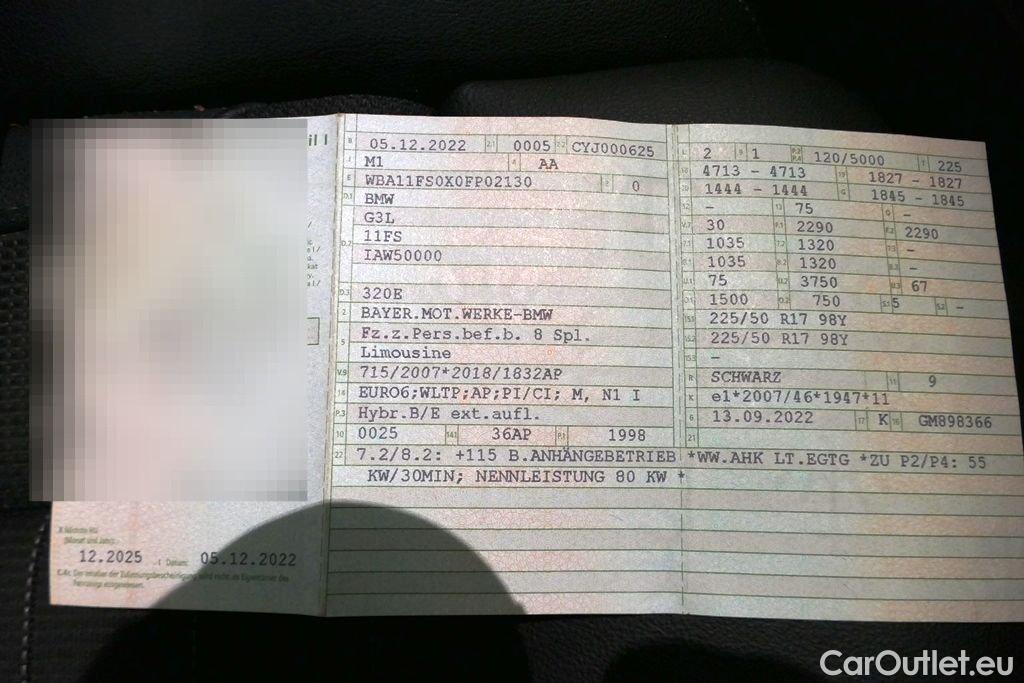 il I
B 05.12.2022 2.1 0005 2.2 CYJ000625
J M1 4 AA
E WBA11FS0X0FP02130 3 0
D.1 BMW
G3L
D.2 11FS
IAW50000
D.3 320E
2 BAYER.MOT.WERKE-BMW
5 Fz.z.Pers.bef.b. 8 Spl.
Limousine
V.9 715/2007*2018/1832AP
14 EURO6;WLTP;AP;PI/CI; M, N1 I
P.3 Hybr.B/E ext.aufl.
10 0025 14.1 36AP P.1 1998
L 2 9 1 P.2 P.4 120/5000 T 225
18 4713 - 4713 19 1827 - 1827
20 1444 - 1444 G 1845 - 1845
12 - 13 75 Q -
V.7 30 F.1 2290 F.2 2290
7.1 1035 7.2 1320 7.3 -
8.1 1035 8.2 1320 8.3 -
U.1 75 U.2 3750 U.3 67
O.1 1500 O.2 750 S.1 5 S.2 -
15.1 225/50 R17 98Y
15.2 225/50 R17 98Y
15.3 -
R SCHWARZ 11 9
K e1*2007/46*1947*11
6 13.09.2022 17 K 16 GM898366
21
22 7.2/8.2: +115 B.ANHÄNGEBETRIEB *WW.AHK LT.EGTG *ZU P2/P4: 55
KW/30MIN; NENNLEISTUNG 80 KW *
X Nächste HU
(Monat und Jahr):
12.2025 Datum: 05.12.2022
C.4c Der Inhaber der Zulassungsbescheinigung wird nicht als Eigentümer des
Fahrzeugs ausgewiesen.
CarOutlet.eu